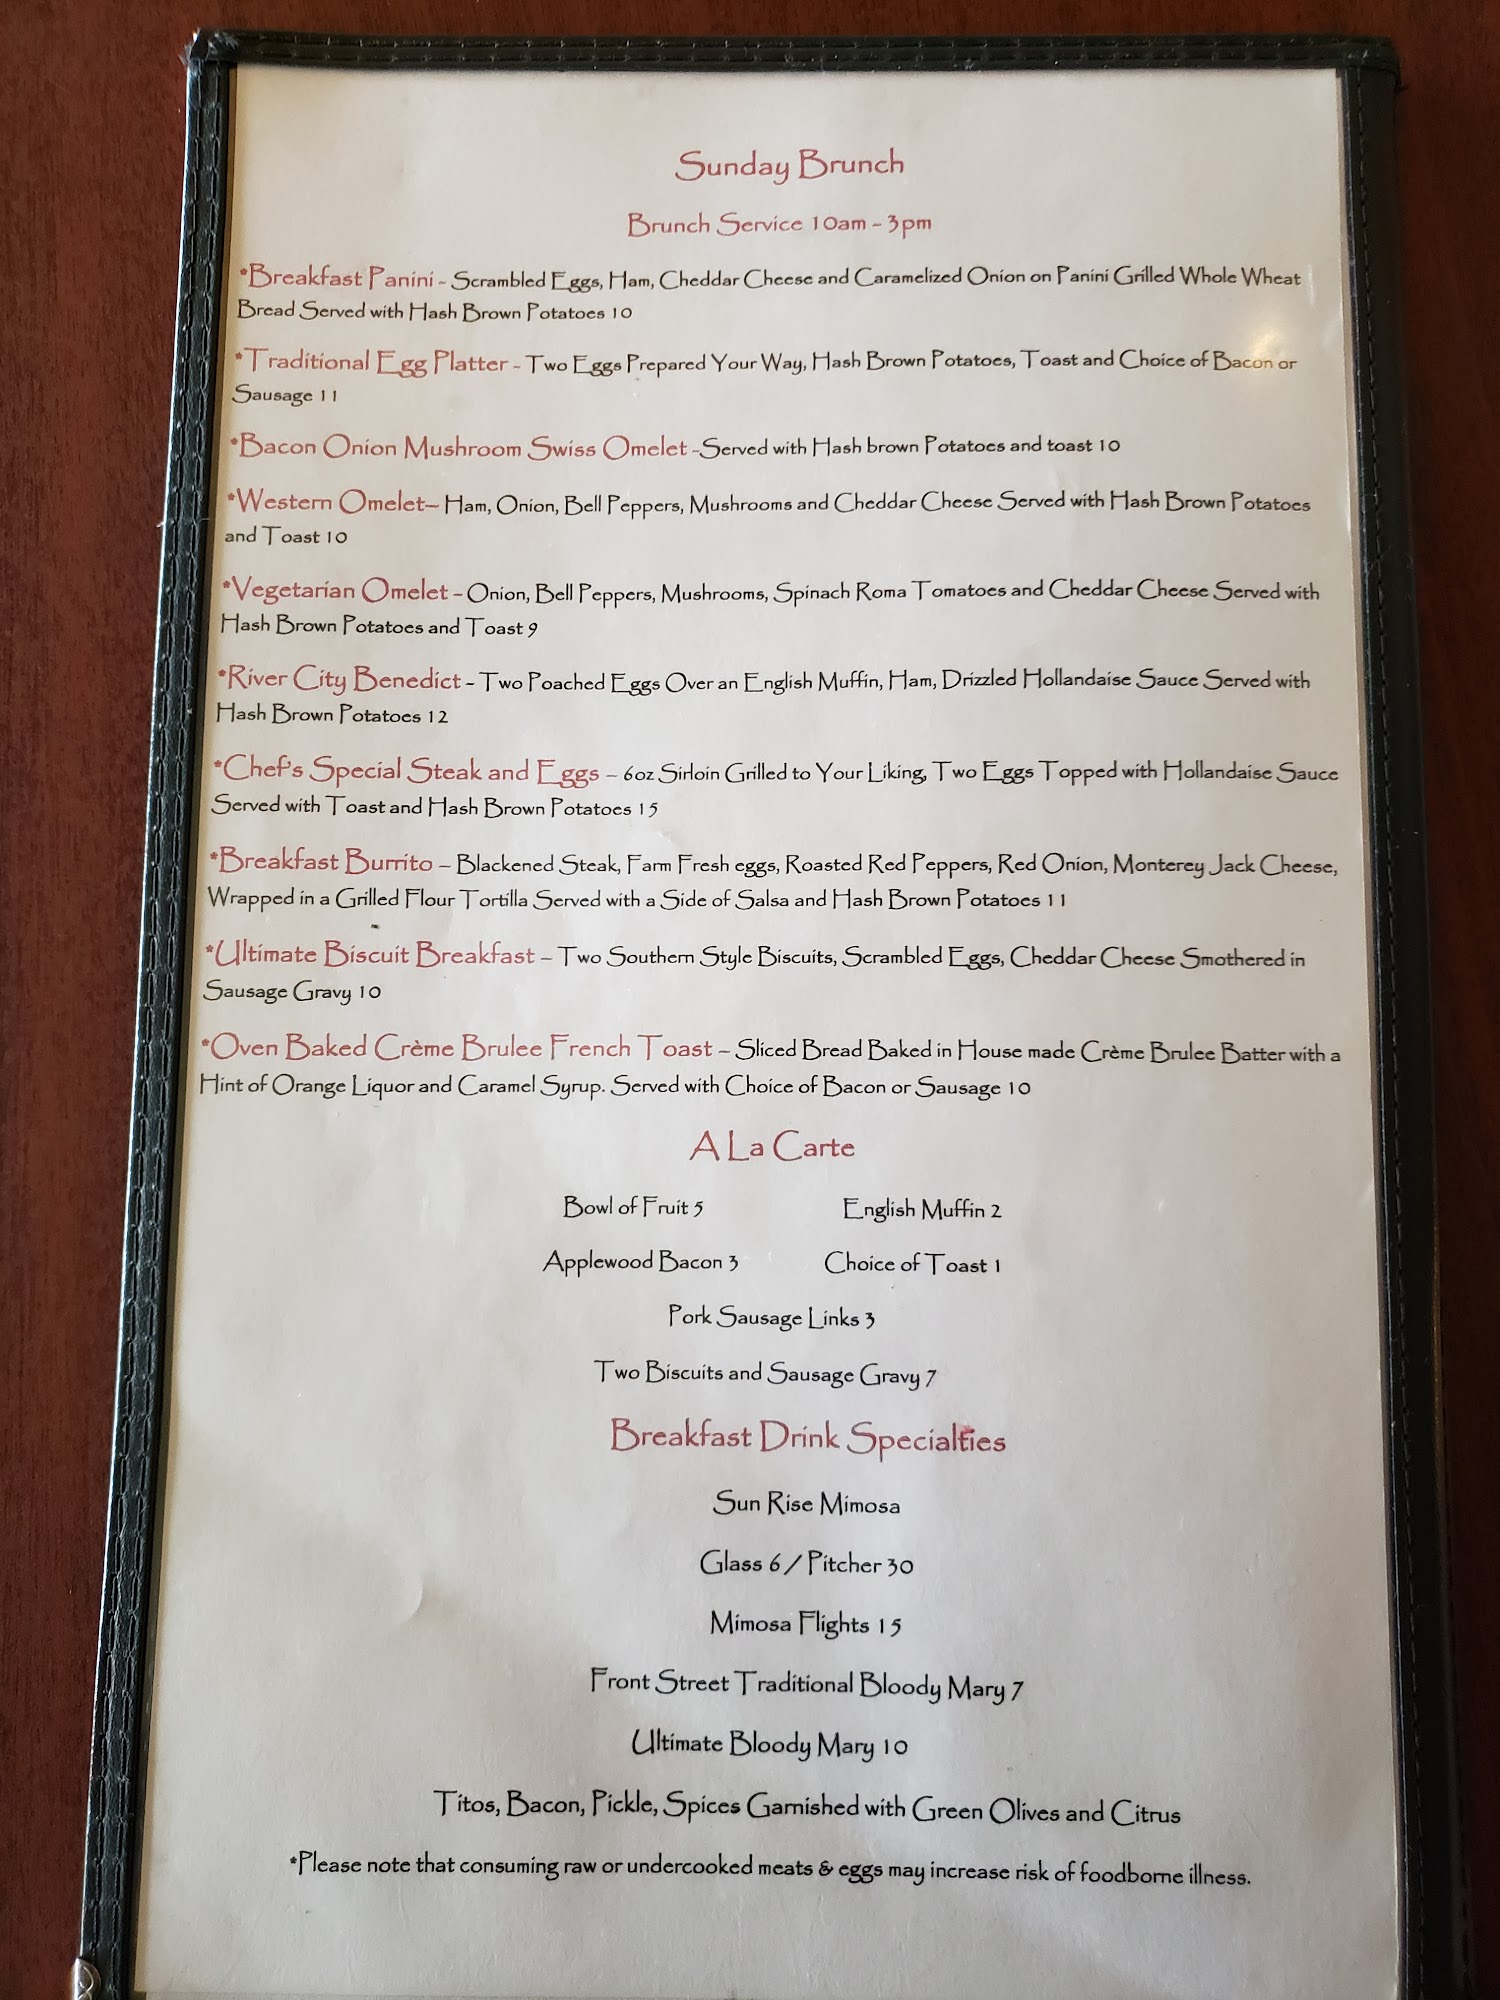 Sunday Brunch
Brunch Service 10am - 3pm
*Breakfast Panini - Scrambled Eggs, Ham, Cheddar Cheese and Caramelized Onion on Panini Grilled Whole Wheat
Bread Served with Hash Brown Potatoes 10
*Traditional Egg Platter - Two Eggs Prepared Your Way, Hash Brown Potatoes, Toast and Choice of Bacon or
Sausage 11
*Bacon Onion Mushroom Swiss Omelet -Served with Hash brown Potatoes and toast 10
*Western Omelet– Ham, Onion, Bell Peppers, Mushrooms and Cheddar Cheese Served with Hash Brown Potatoes
and Toast 10
*Vegetarian Omelet - Onion, Bell Peppers, Mushrooms, Spinach Roma Tomatoes and Cheddar Cheese Served with
Hash Brown Potatoes and Toast 9
*River City Benedict - Two Poached Eggs Over an English Muffin, Ham, Drizzled Hollandaise Sauce Served with
Hash Brown Potatoes 12
*Chef's Special Steak and Eggs – 6oz Sirloin Grilled to Your Liking, Two Eggs Topped with Hollandaise Sauce
Served with Toast and Hash Brown Potatoes 15
*Breakfast Burrito – Blackened Steak, Farm Fresh eggs, Roasted Red Peppers, Red Onion, Monterey Jack Cheese,
Wrapped in a Grilled Flour Tortilla Served with a Side of Salsa and Hash Brown Potatoes 11
*Ultimate Biscuit Breakfast – Two Southern Style Biscuits, Scrambled Eggs, Cheddar Cheese Smothered in
Sausage Gravy 10
*Oven Baked Crème Brulee French Toast – Sliced Bread Baked in House made Crème Brulee Batter with a
Hint of Orange Liquor and Caramel Syrup. Served with Choice of Bacon or Sausage 10
A La Carte
Bowl of Fruit 5 English Muffin 2
Applewood Bacon 3 Choice of Toast 1
Pork Sausage Links 3
Two Biscuits and Sausage Gravy 7
Breakfast Drink Specialties
Sun Rise Mimosa
Glass 6 / Pitcher 30
Mimosa Flights 15
Front Street Traditional Bloody Mary 7
Ultimate Bloody Mary 10
Titos, Bacon, Pickle, Spices Garnished with Green Olives and Citrus
*Please note that consuming raw or undercooked meats & eggs may increase risk of foodborne illness.